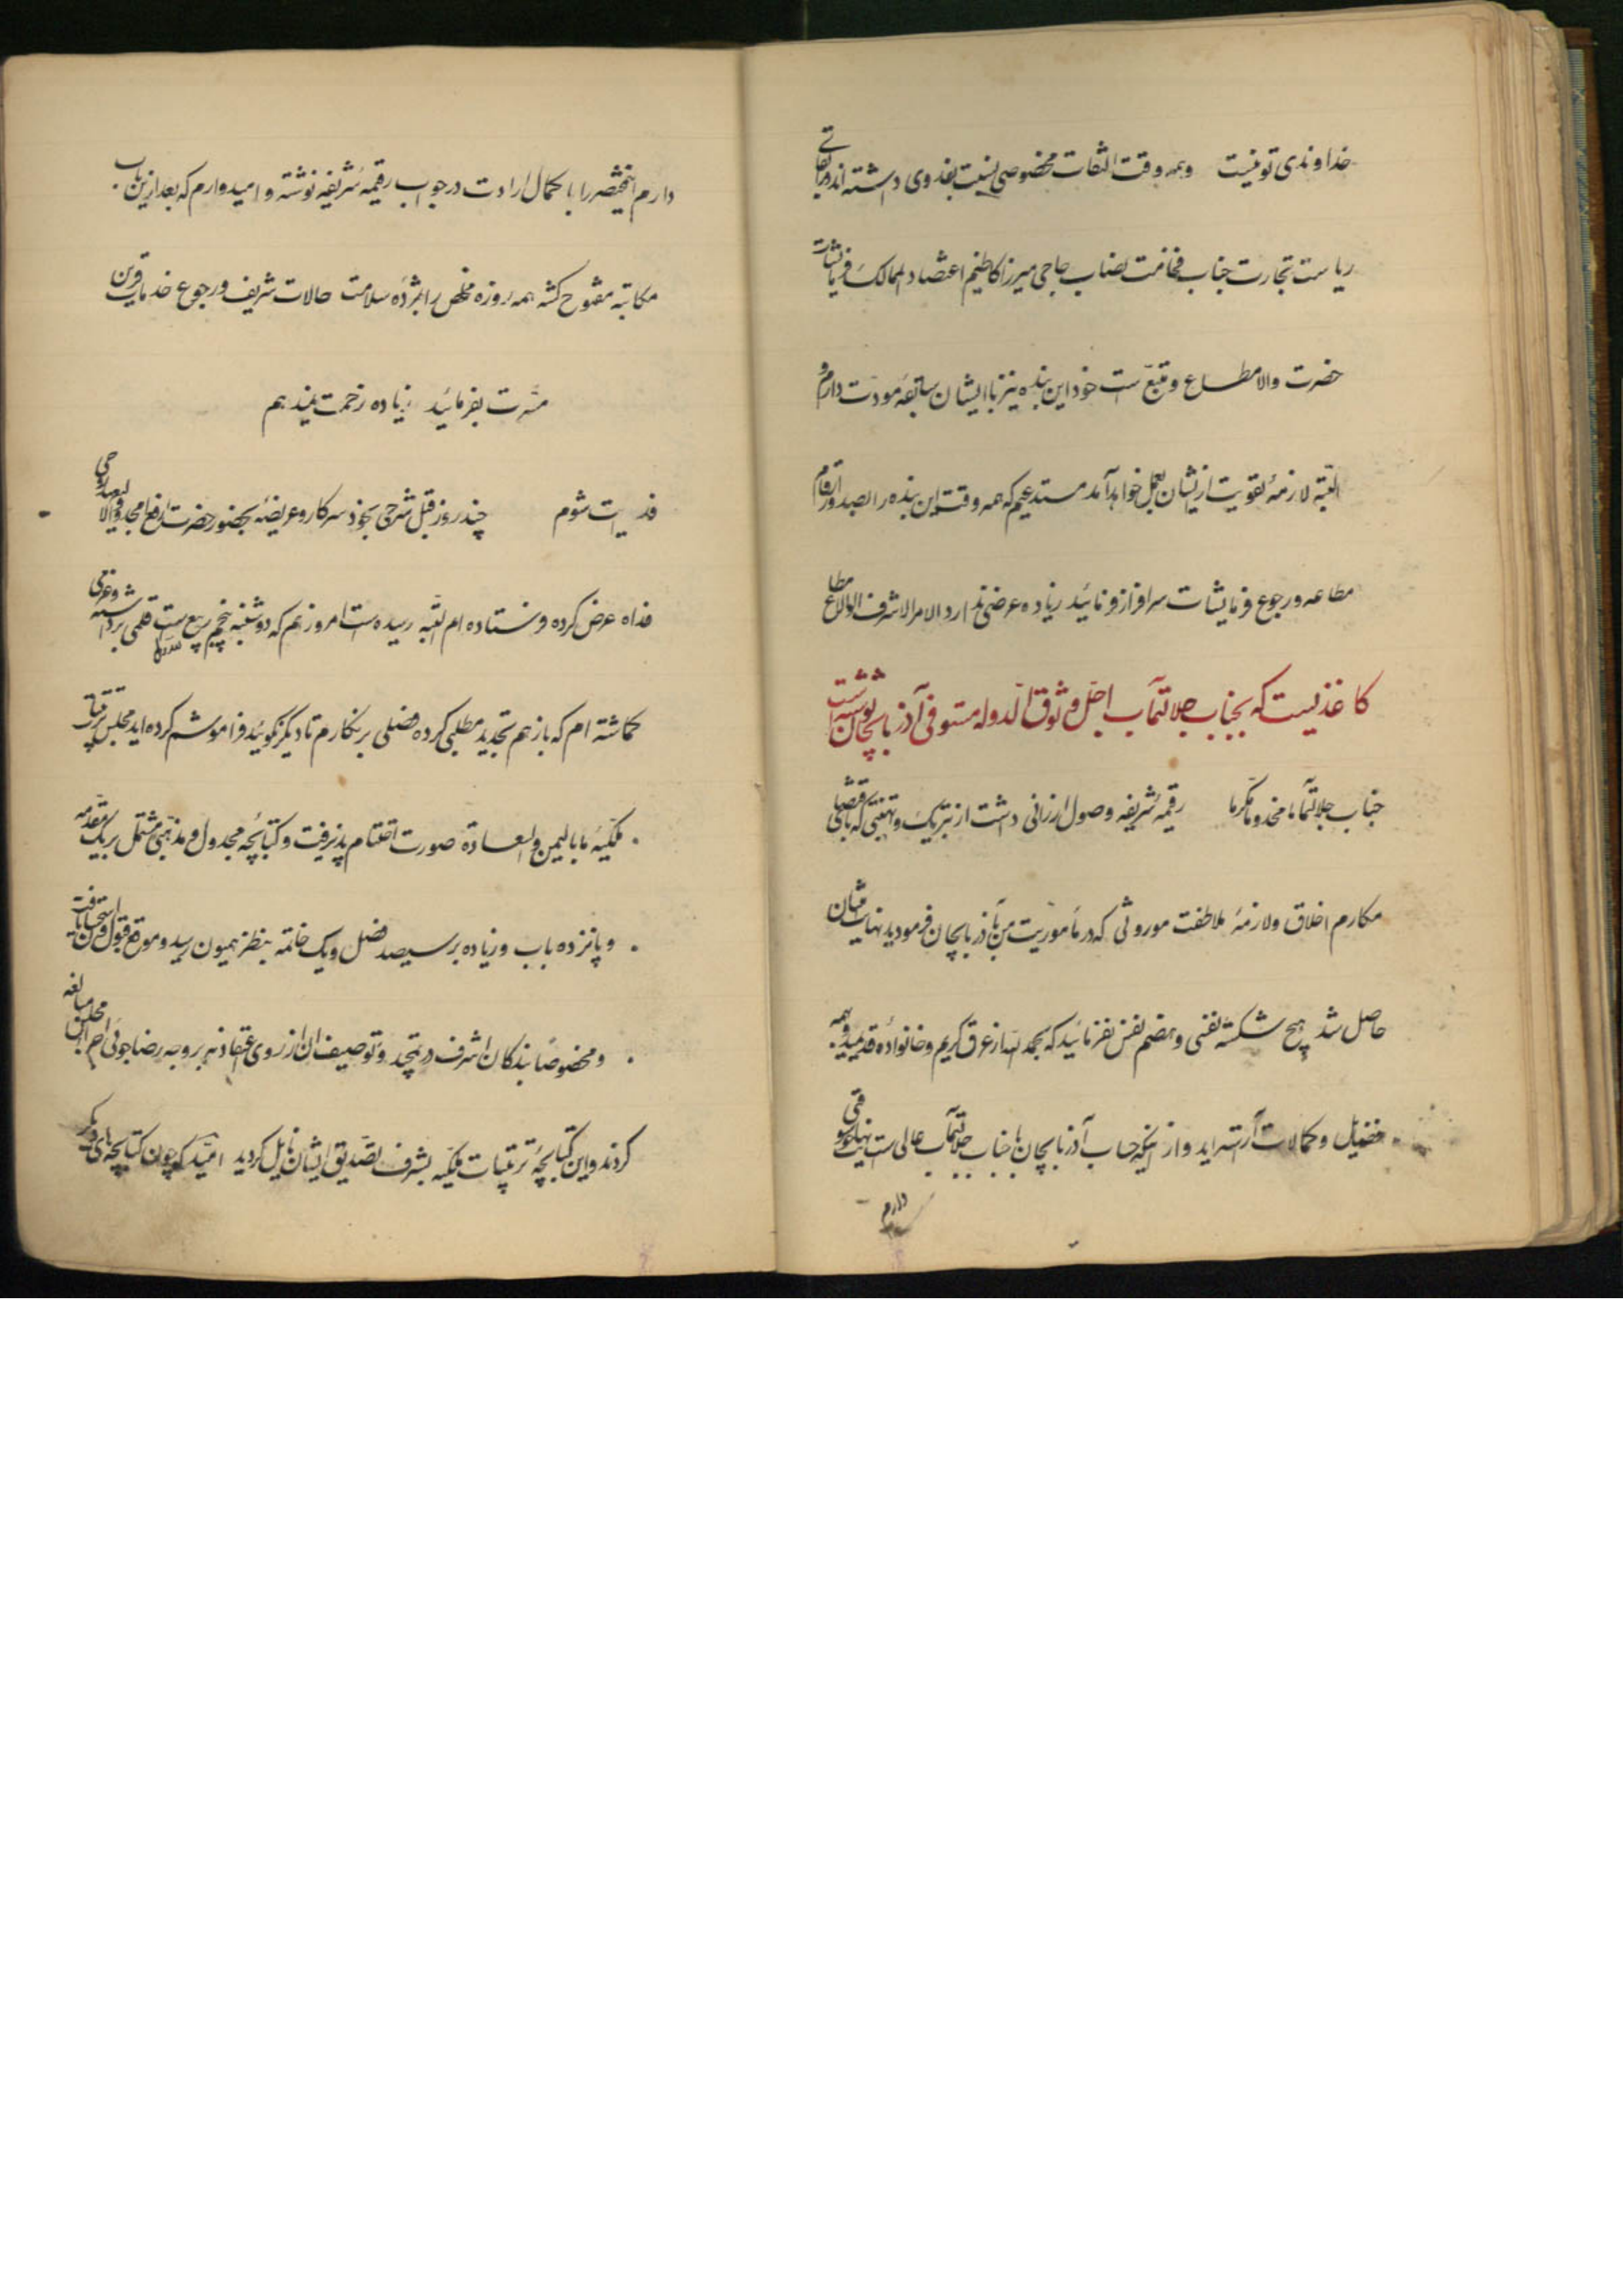 خداوندی تو نیست وهمه وقت التفات مخصوصی نسبت بفدوی داشته اند در بقای
ریاست تجارت جناب فخامت نصاب حاجی میرزا کاظم اعتضاد الممالک فرمایشات
حضرت والا مطاع و متبع است خود این بنده نیز با ایشان سابقهٔ مودت دارم و
البته لازمهٔ تقویت از ایشان بعمل خواهد آمد مستدعیم که همه وقت این بنده را بصدور ارقام
مطاعه و رجوع فرمایشات سرافراز فرمائید زیاده عرضی ندارد الامر الاشرف الوالا مطاع
کاغذیست که بجناب جلالتمآب اجل وثوق الدوله مستوفی آذربایجان نوشته شده است
جناب جلالتمآبا مخدوما مکرما رقیمهٔ شریفه وصول ارزانی داشت از تبریک و تهنیتی که باقتضای
مکارم اخلاق و لازمهٔ ملاطفت موروثی که در مأموریت من بآذربایجان فرمودید نهایت امتنان
حاصل شد هیچ شکسته نفسی و هضم نفس نفرمائید که بحمد الله از عرق کریم و خانوادهٔ قدیمید و بهمه
فضیل و کمالات آراسته اید و از اینکه حساب آذربایجان با جناب جلالتمآب عالی است نهایت خوشوقتی
دارم
دارم اینمختصر را با کمال ارادت در جواب رقیمهٔ شریفه نوشته و امیدوارم که بعد ازین باب
مکاتبه مفتوح گشته همه روزه مخلص را بمژدهٔ سلامت حالات شریف و رجوع خدمات قرین
مسرت بفرمائید زیاده زحمت نمیدهم
فدایت شوم چند روز قبل شرحی بخود سرکار و عریضهٔ بحضور حضرت ارفع امجد والا ولیعهد روحی
فداه عرض کرده فرستاده ام البته رسیده است امروز هم که دوشنبه پنجم ربیع است قلمی برداشته و عزمی
گماشته ام که باز هم تجدید مطلبی کرده فصلی برنگارم تا دیگر نگوئید فراموشم کرده اید مجلس ترتیبات
ملکیهٔ ما بالیمن و السعادة صورت اختتام پذیرفت و کتابچهٔ مجدول و مذهبی مشتمل بر یک مقدمه
و پانزده باب و زیاده بر سیصد فصل و یک خاتمه بنظر همیون رسید و موقع قبول و استحسان یافت
و مخصوصا بندگان اشرف در تمجید و توصیف آن از روی اعتقاد نه بر وجه رضاجوئی اهل مجلس مبالغه
کردند و این کتابچهٔ ترتیبات ملکیه بشرف تصدیق ایشان نایل گردید امید که چون کتابچه های دیگر